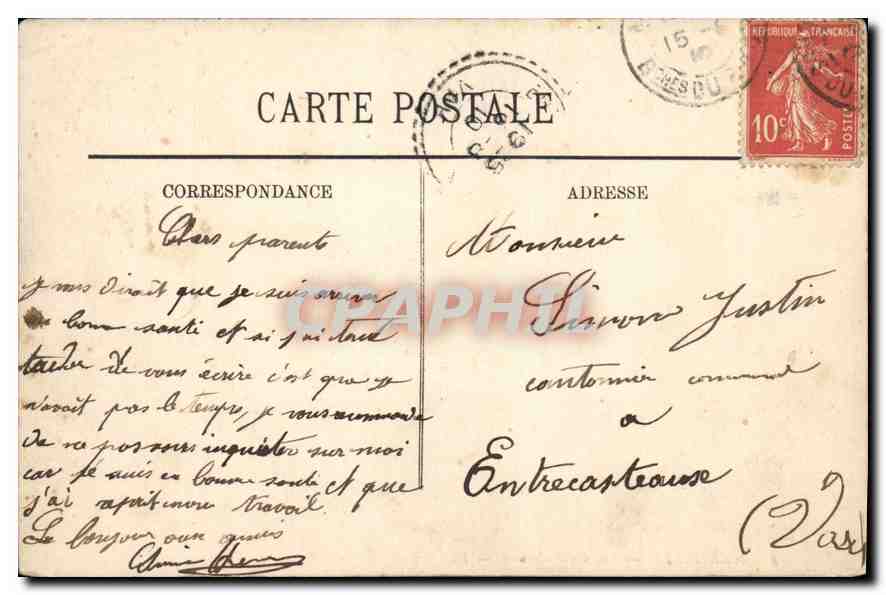 CARTE POSTALE
RÉPUBLIQUE FRANÇAISE
10c
POSTES
15
RHES DU
CORRESPONDANCE
ADRESSE
Chers parents
je vous dirait que je suis
bonne santé et si j'ai tant
tarder de vous écrire c'est que je
n'avait pas le temps, je vous
de ne pas vous inquiéter sur moi
car je suis en bonne santé et que
j'ai reprit mon travail.
Le bonjour aux amis
Monsieur
Simon Justin
cantonnier
a
Entrecasteause
(Var)
CPAPHIL